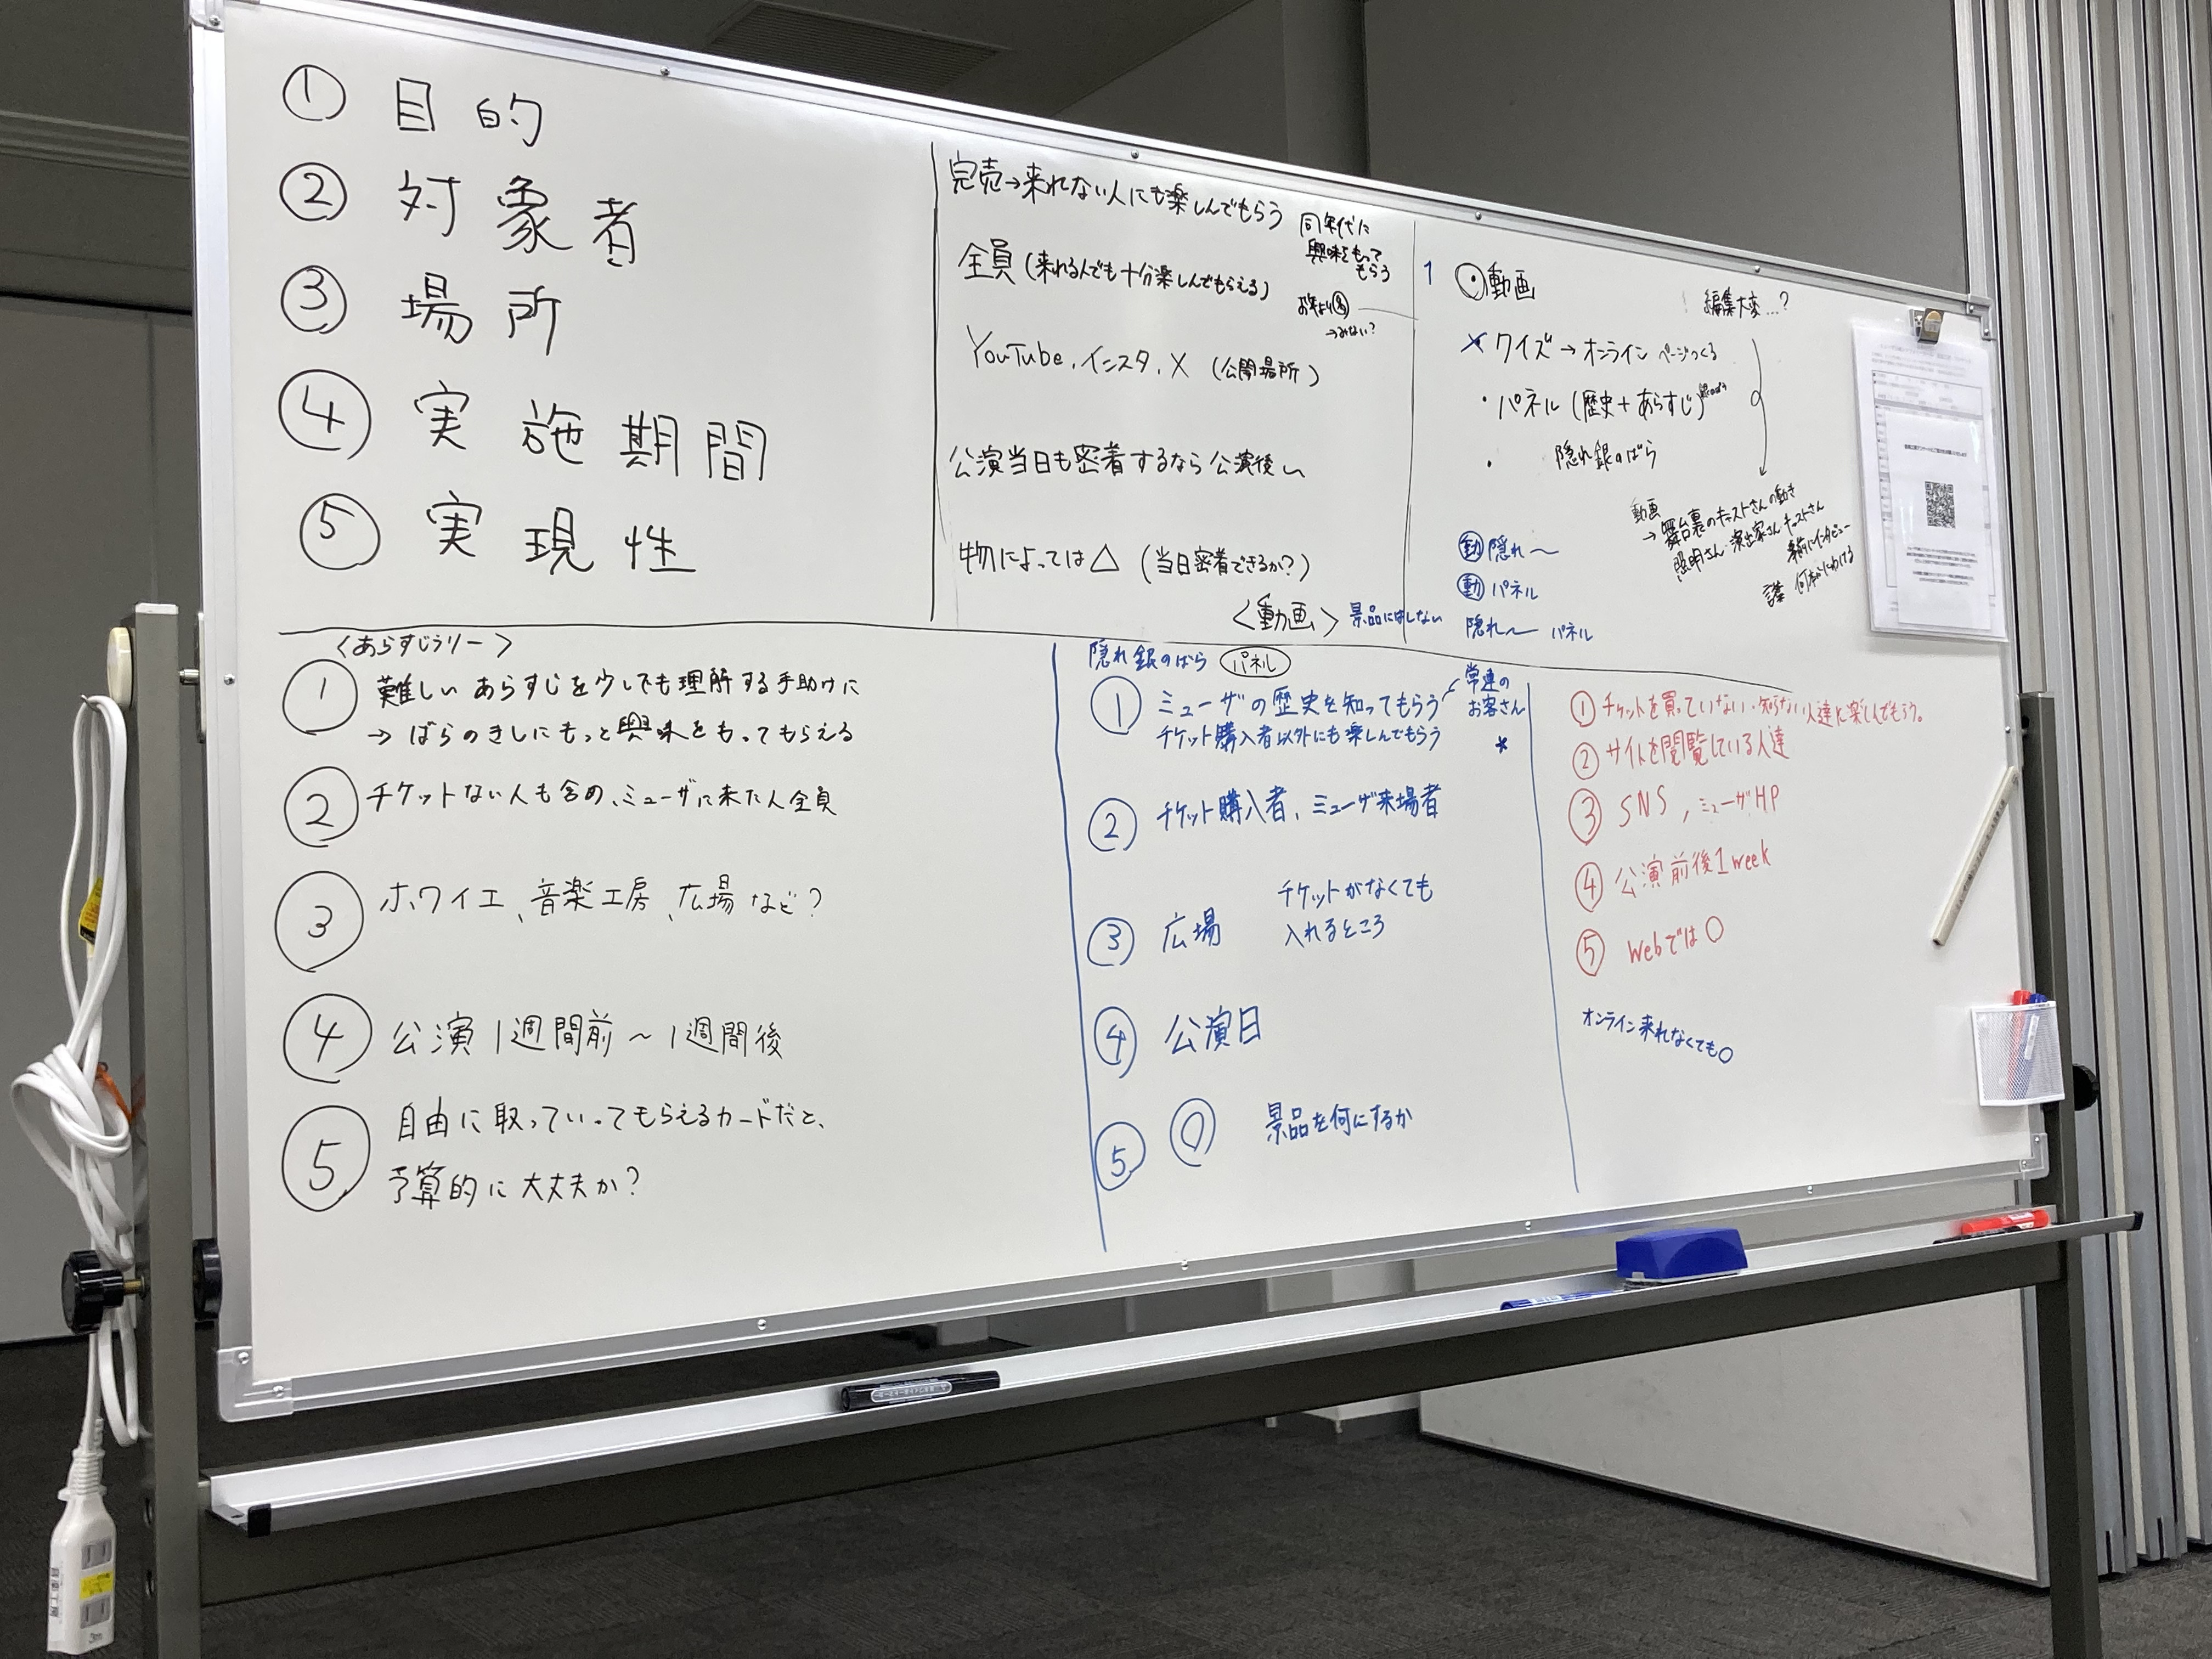 ① 目的
② 対象者
③ 場所
④ 実施期間
⑤ 実現性
完売→来れない人にも楽しんでもらう
同年代に
興味をもって
もらう
全員(来れる人でも十分楽しんでもらえる)
お年より
→みない?
YouTube、インスタ、X (公開場所)
公演当日も密着するなら公演後〜
物によっては△ (当日密着できるか?)
<動画>
景品にはしない
1
動画
編集大変…?
×クイズ→オンライン ページつくる
・パネル(歴史+あらすじ)
・ 隠れ銀のばら
動画
→舞台裏のキャストさんの動き
照明さん・演出家さん・キャストさん
事前にインタビュー
何本かにわける
動 隠れ〜
動 パネル
隠れ〜 パネル
<あらすじツリー>
① 難しいあらすじを少しでも理解する手助けに
→ ばらのきしにもっと興味をもってもらえる
② チケットない人も含め、ミューザに来た人全員
③ ホワイエ、音楽工房、広場など?
④ 公演1週間前〜1週間後
⑤ 自由に取っていってもらえるカードだと、
予算的に大丈夫か?
隠れ銀のばら パネル
① ミューザの歴史を知ってもらう
チケット購入者以外にも楽しんでもらう
常連の
お客さん
*
② チケット購入者、ミューザ来場者
③ 広場 チケットがなくても
入れるところ
④ 公演日
⑤ ◎ 景品を何にするか
① チケットを買っていない・知らない人達に楽しんでもらう。
② サイトを閲覧している人達
③ SNS, ミューザHP
④ 公演前後1week
⑤ Webでは○
オンライン来れなくても○